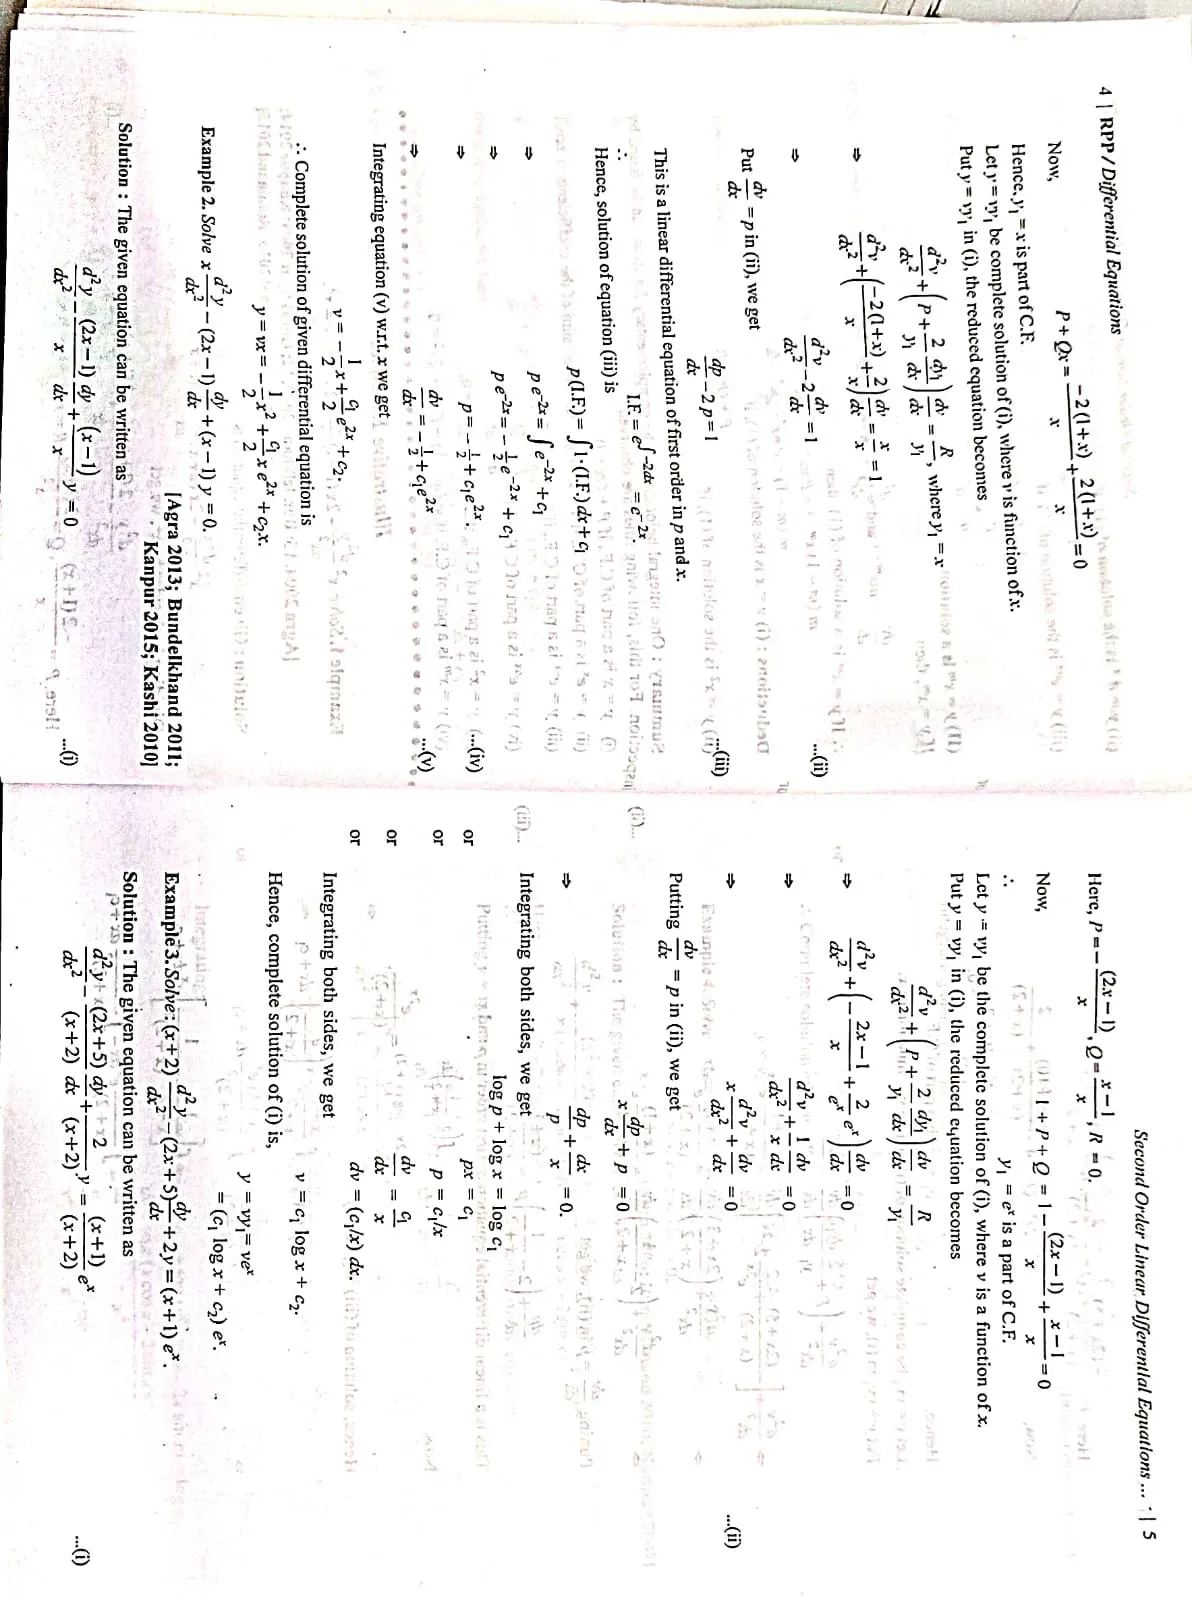 4 | RPP / Differential Equations
Now, P + Qx = -2(1+x)/x + 2(1+x)/x = 0
Hence, y₁ = x is part of C.F.
Let y = vy₁ be complete solution of (i), where v is function of x.
Put y = vy₁ in (i), the reduced equation becomes
d²v/dx² + (P + 2/y₁ dy₁/dx) dv/dx = R/y₁, where y₁ = x
⇒ d²v/dx² + (-2(1+x)/x + 2/x) dv/dx = x/x = 1
⇒ d²v/dx² - 2 dv/dx = 1 ...(ii)
Put dv/dx = p in (ii), we get
dp/dx - 2p = 1 ...(iii)
This is a linear differential equation of first order in p and x.
∴ I.F. = e^∫-2dx = e^-2x
Hence, solution of equation (iii) is
p(I.F.) = ∫1·(I.F.) dx + c₁
⇒ p e^-2x = ∫e^-2x + c₁
⇒ p e^-2x = -1/2 e^-2x + c₁
⇒ p = -1/2 + c₁e^2x. ...(iv)
⇒ dv/dx = -1/2 + c₁e^2x ...(v)
Integrating equation (v) w.r.t. x we get
v = -1/2 x + c₁/2 e^2x + c₂.
∴ Complete solution of given differential equation is
y = vx = -1/2 x² + c₁/2 x e^2x + c₂x.
Example 2. Solve x d²y/dx² - (2x-1) dy/dx + (x-1) y = 0.
[Agra 2013; Bundelkhand 2011;
Kanpur 2015; Kashi 2010]
Solution : The given equation can be written as
d²y/dx² - (2x-1)/x dy/dx + (x-1)/x y = 0 ...(i)
Second Order Linear Differential Equations ... | 5
Here, P = -(2x-1)/x, Q = x-1/x, R = 0.
Now, 1 + P + Q = 1 - (2x-1)/x + x-1/x = 0
∴ y₁ = eˣ is a part of C.F.
Let y = vy₁ be the complete solution of (i), where v is a function of x.
Put y = vy₁ in (i), the reduced equation becomes
d²v/dx² + (P + 2/y₁ dy₁/dx) dv/dx = R/y₁
⇒ d²v/dx² + (- 2x-1/x + 2/eˣ eˣ) dv/dx = 0
⇒ d²v/dx² + 1/x dv/dx = 0
⇒ x d²v/dx² + dv/dx = 0 ...(ii)
Putting dv/dx = p in (ii), we get
x dp/dx + p = 0
⇒ dp/p + dx/x = 0.
Integrating both sides, we get
log p + log x = log c₁
or px = c₁
or p = c₁/x
or dv/dx = c₁/x
or dv = (c₁/x) dx.
Integrating both sides, we get
v = c₁ log x + c₂.
Hence, complete solution of (i) is,
y = vy₁ = veˣ
= (c₁ log x + c₂) eˣ.
Example 3. Solve: (x+2) d²y/dx² - (2x+5) dy/dx + 2y = (x+1) eˣ.
Solution : The given equation can be written as
d²y/dx² - (2x+5)/(x+2) dy/dx + 2/(x+2) y = (x+1)/(x+2) eˣ ...(i)